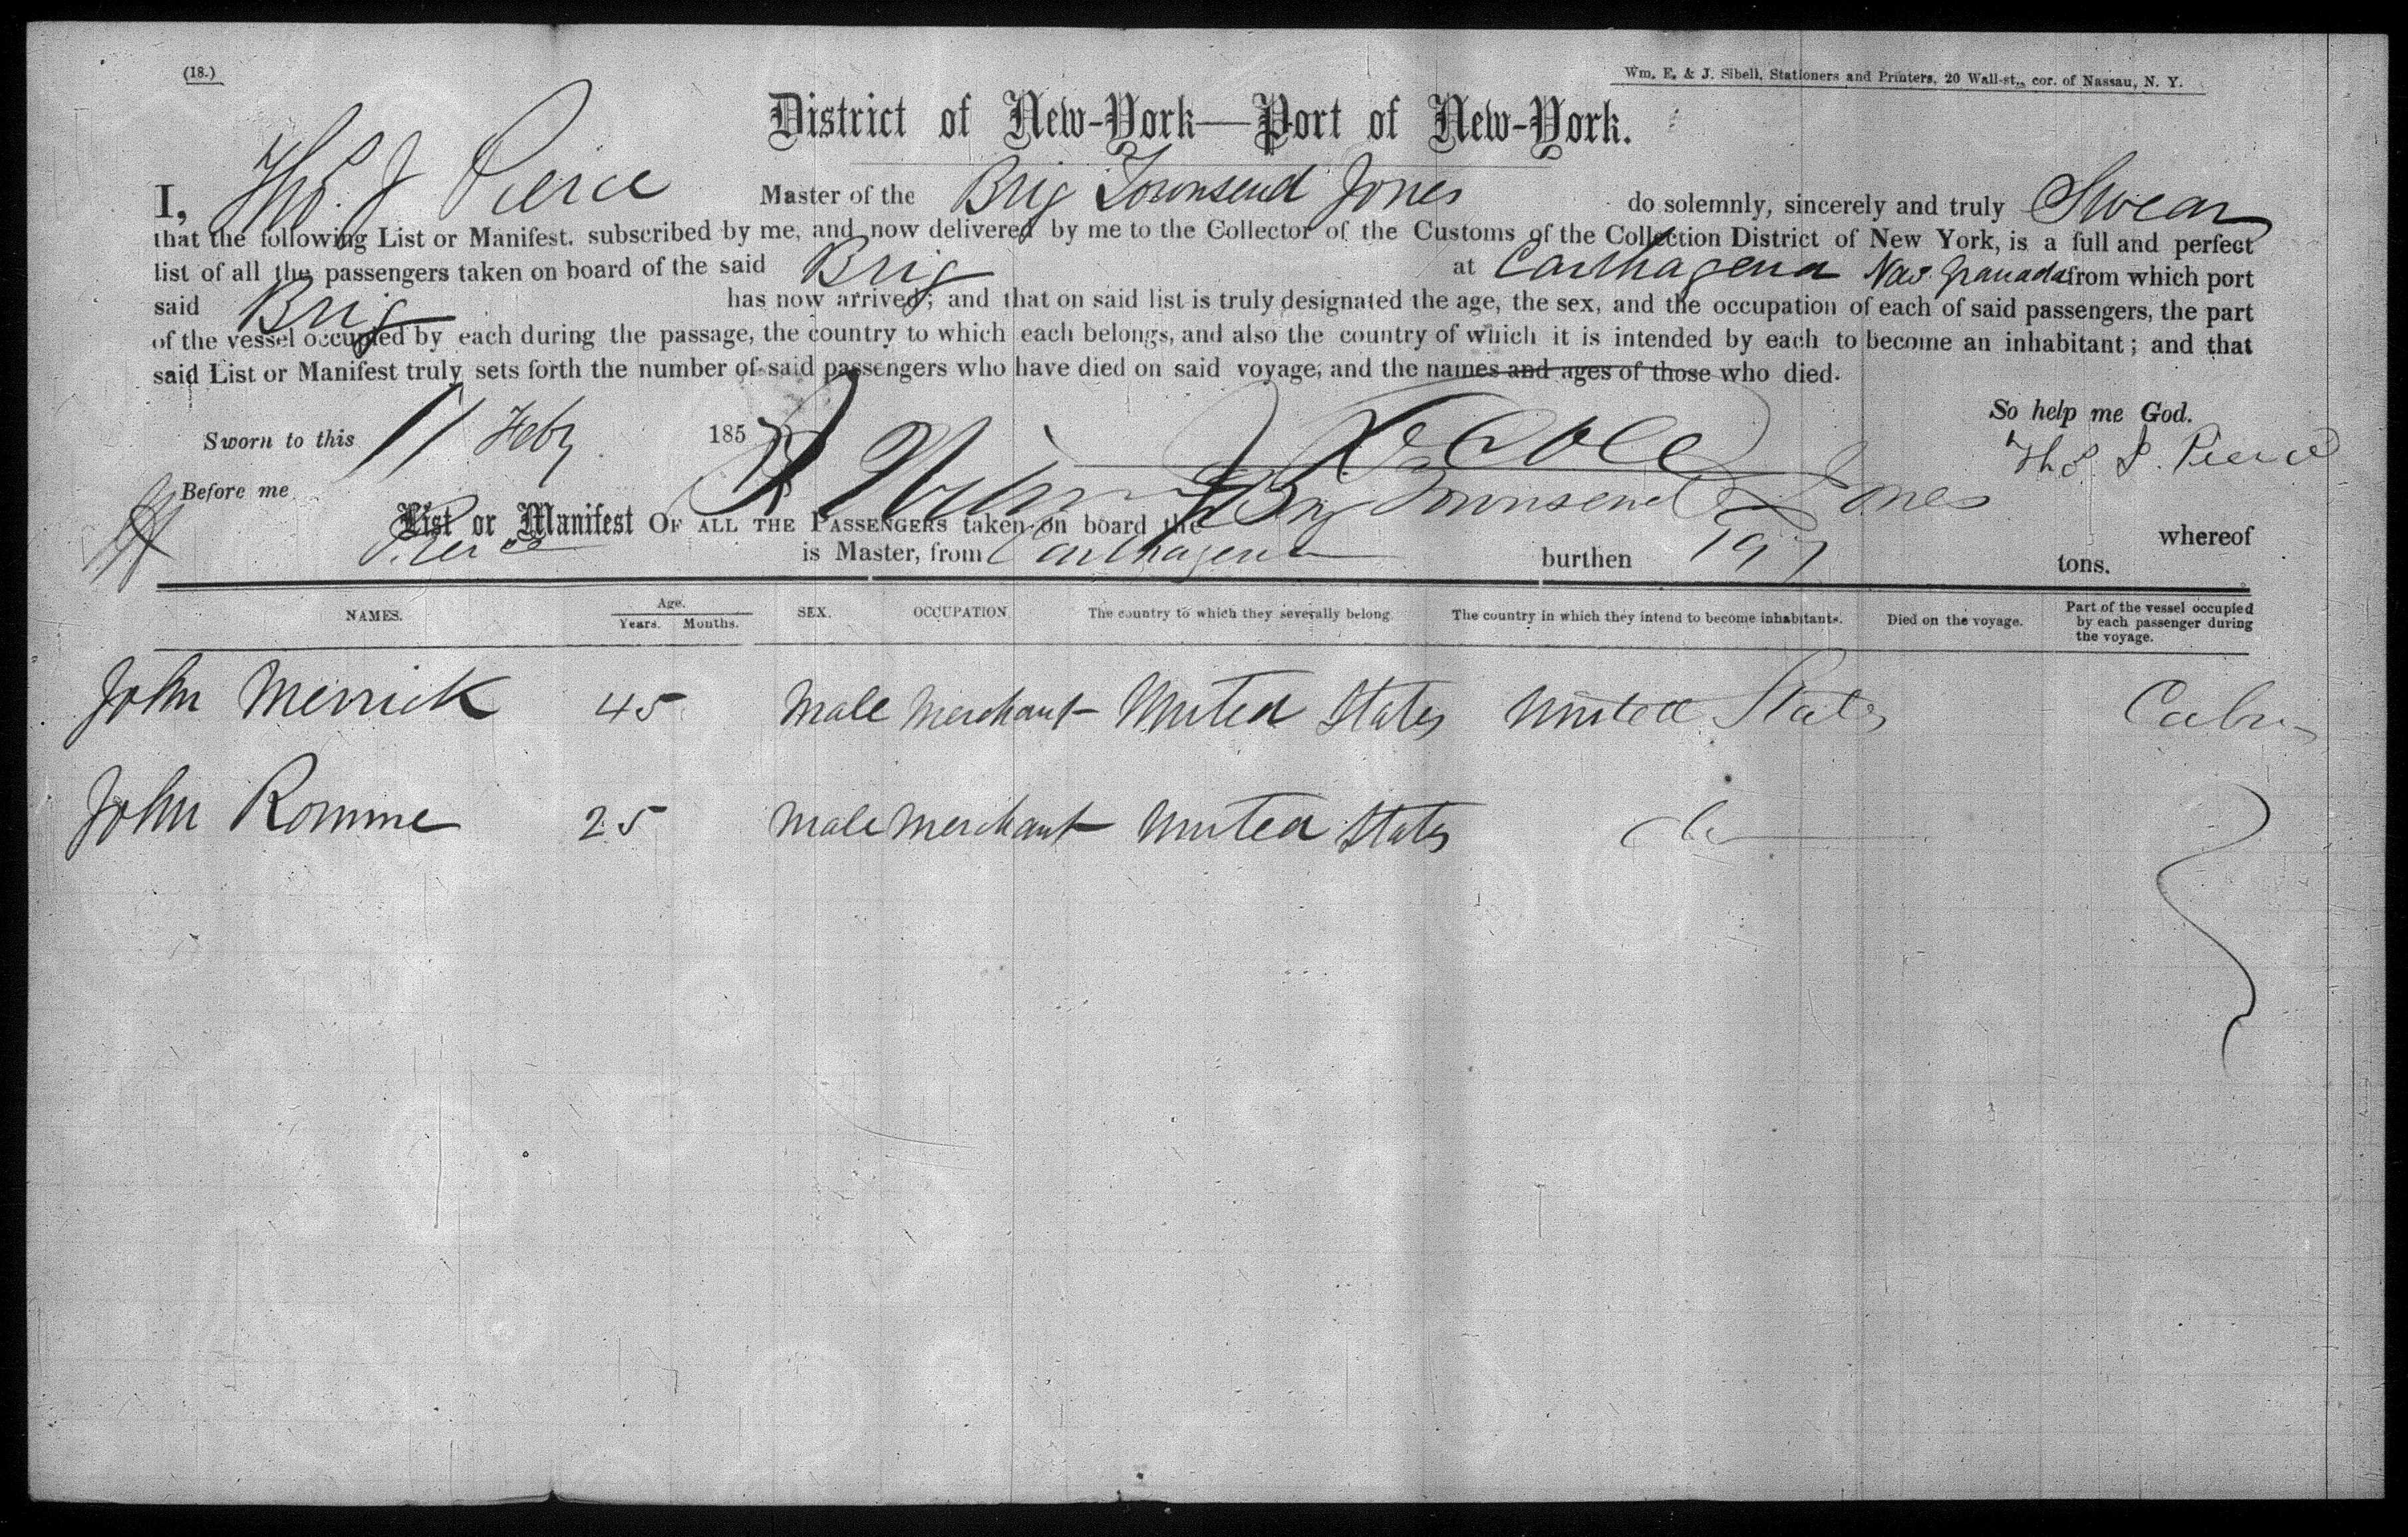 (18.)
Wm. E. & J. Sibell, Stationers and Printers, 20 Wall-st., cor. of Nassau, N. Y.
District of New-York—Port of New-York.
I, Thos. J Pierce Master of the Brig Townsend Jones do solemnly, sincerely and truly Swear
that the following List or Manifest, subscribed by me, and now delivered by me to the Collector of the Customs of the Collection District of New York, is a full and perfect
list of all the passengers taken on board of the said Brig at Carthagena New Granada from which port
said Brig has now arrived; and that on said list is truly designated the age, the sex, and the occupation of each of said passengers, the part
of the vessel occupied by each during the passage, the country to which each belongs, and also the country of which it is intended by each to become an inhabitant; and that
said List or Manifest truly sets forth the number of said passengers who have died on said voyage, and the names and ages of those who died.
So help me God.
Sworn to this 11 Feby 185
Thos. J. Pierce
Before me
List or Manifest OF ALL THE PASSENGERS taken on board the Brig Townsend Jones whereof
Pierce is Master, from Carthagena burthen 197 tons.
NAMES. Age. Years. Months. SEX. OCCUPATION. The country to which they severally belong. The country in which they intend to become inhabitants. Died on the voyage. Part of the vessel occupied by each passenger during the voyage.
John Merrick 45 Male Merchant United States United States Cabin
John Romme 25 Male Merchant United States do